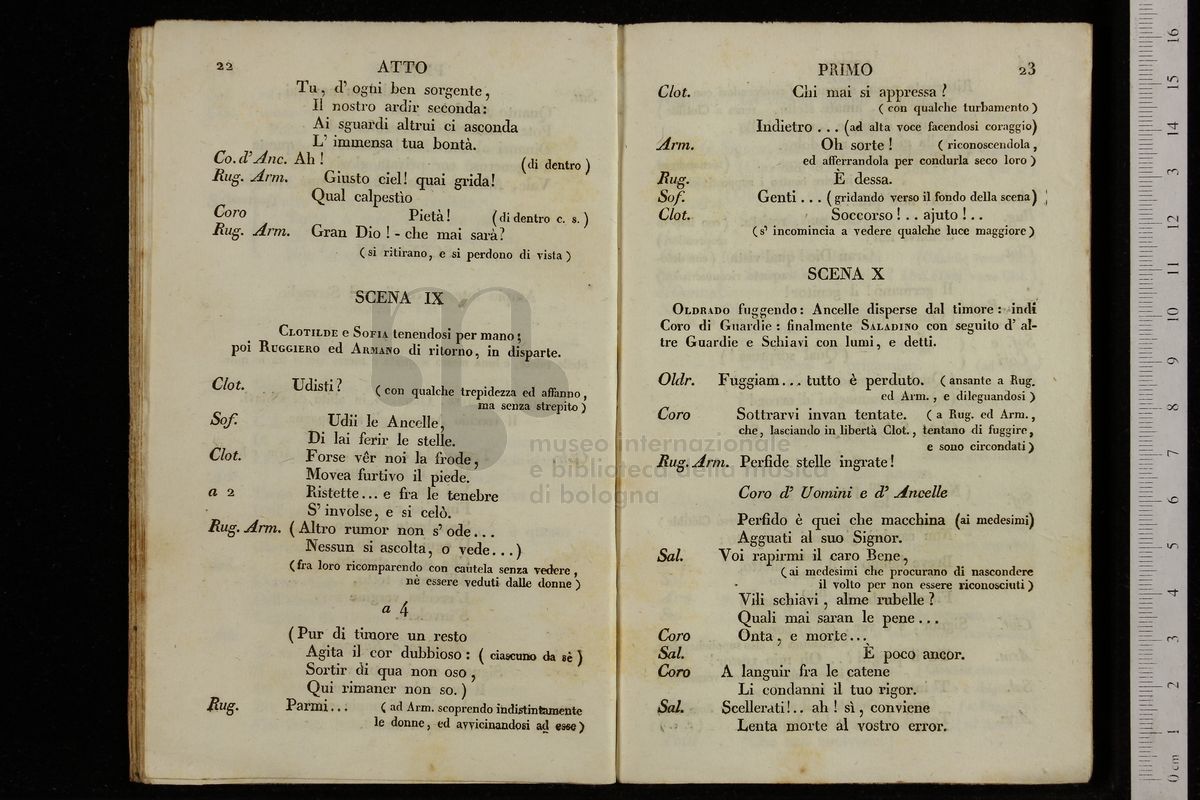 22 ATTO
Tu, d' ogni ben sorgente,
Il nostro ardir seconda:
Ai sguardi altrui ci asconda
L' immensa tua bontà.
Co. d' Anc. Ah! (di dentro)
Rug. Arm. Giusto ciel! quai grida!
Qual calpestìo
Coro Pietà! (di dentro c. s.)
Rug. Arm. Gran Dio! - che mai sarà?
(si ritirano, e si perdono di vista)
SCENA IX
CLOTILDE e SOFIA tenendosi per mano;
poi RUGGIERO ed ARMANO di ritorno, in disparte.
Clot. Udisti? (con qualche trepidezza ed affanno,
ma senza strepito)
Sof. Udii le Ancelle,
Di lai ferir le stelle.
Clot. Forse vêr noi la frode,
Movea furtivo il piede.
a 2 Ristette... e fra le tenebre
S' involse, e si celò.
Rug. Arm. (Altro rumor non s' ode...
Nessun si ascolta, o vede...)
(fra loro ricomparendo con cautela senza vedere,
nè essere veduti dalle donne)
a 4
(Pur di timore un resto
Agita il cor dubbioso: (ciascuno da sè)
Sortir di qua non oso,
Qui rimaner non so.)
Rug. Parmi... (ad Arm. scoprendo indistintamente
le donne, ed avvicinandosi ad esse)
PRIMO 23
Clot. Chi mai si appressa?
(con qualche turbamento)
Indietro... (ad alta voce facendosi coraggio)
Arm. Oh sorte! (riconoscendola,
ed afferrandola per condurla seco loro)
Rug. È dessa.
Sof. Genti... (gridando verso il fondo della scena)
Clot. Soccorso!.. ajuto!..
(s' incomincia a vedere qualche luce maggiore)
SCENA X
OLDRADO fuggendo: Ancelle disperse dal timore: indi
Coro di Guardie: finalmente SALADINO con seguito d' al-
tre Guardie e Schiavi con lumi, e detti.
Oldr. Fuggiam... tutto è perduto. (ansante a Rug.
ed Arm., e dileguandosi)
Coro Sottrarvi invan tentate. (a Rug. ed Arm.,
che, lasciando in libertà Clot., tentano di fuggire,
e sono circondati)
Rug. Arm. Perfide stelle ingrate!
Coro d' Uomini e d' Ancelle
Perfido è quei che macchina (ai medesimi)
Agguati al suo Signor.
Sal. Voi rapirmi il caro Bene,
(ai medesimi che procurano di nascondere
il volto per non essere riconosciuti)
Vili schiavi, alme rubelle?
Quali mai saran le pene...
Coro Onta, e morte...
Sal. È poco ancor.
Coro A languir fra le catene
Li condanni il tuo rigor.
Sal. Scellerati!.. ah! sì, conviene
Lenta morte al vostro error.
museo internazionale
e biblioteca della musica
di bologna
0 cm 1 2 3 4 5 6 7 8 9 10 11 12 13 14 15 16